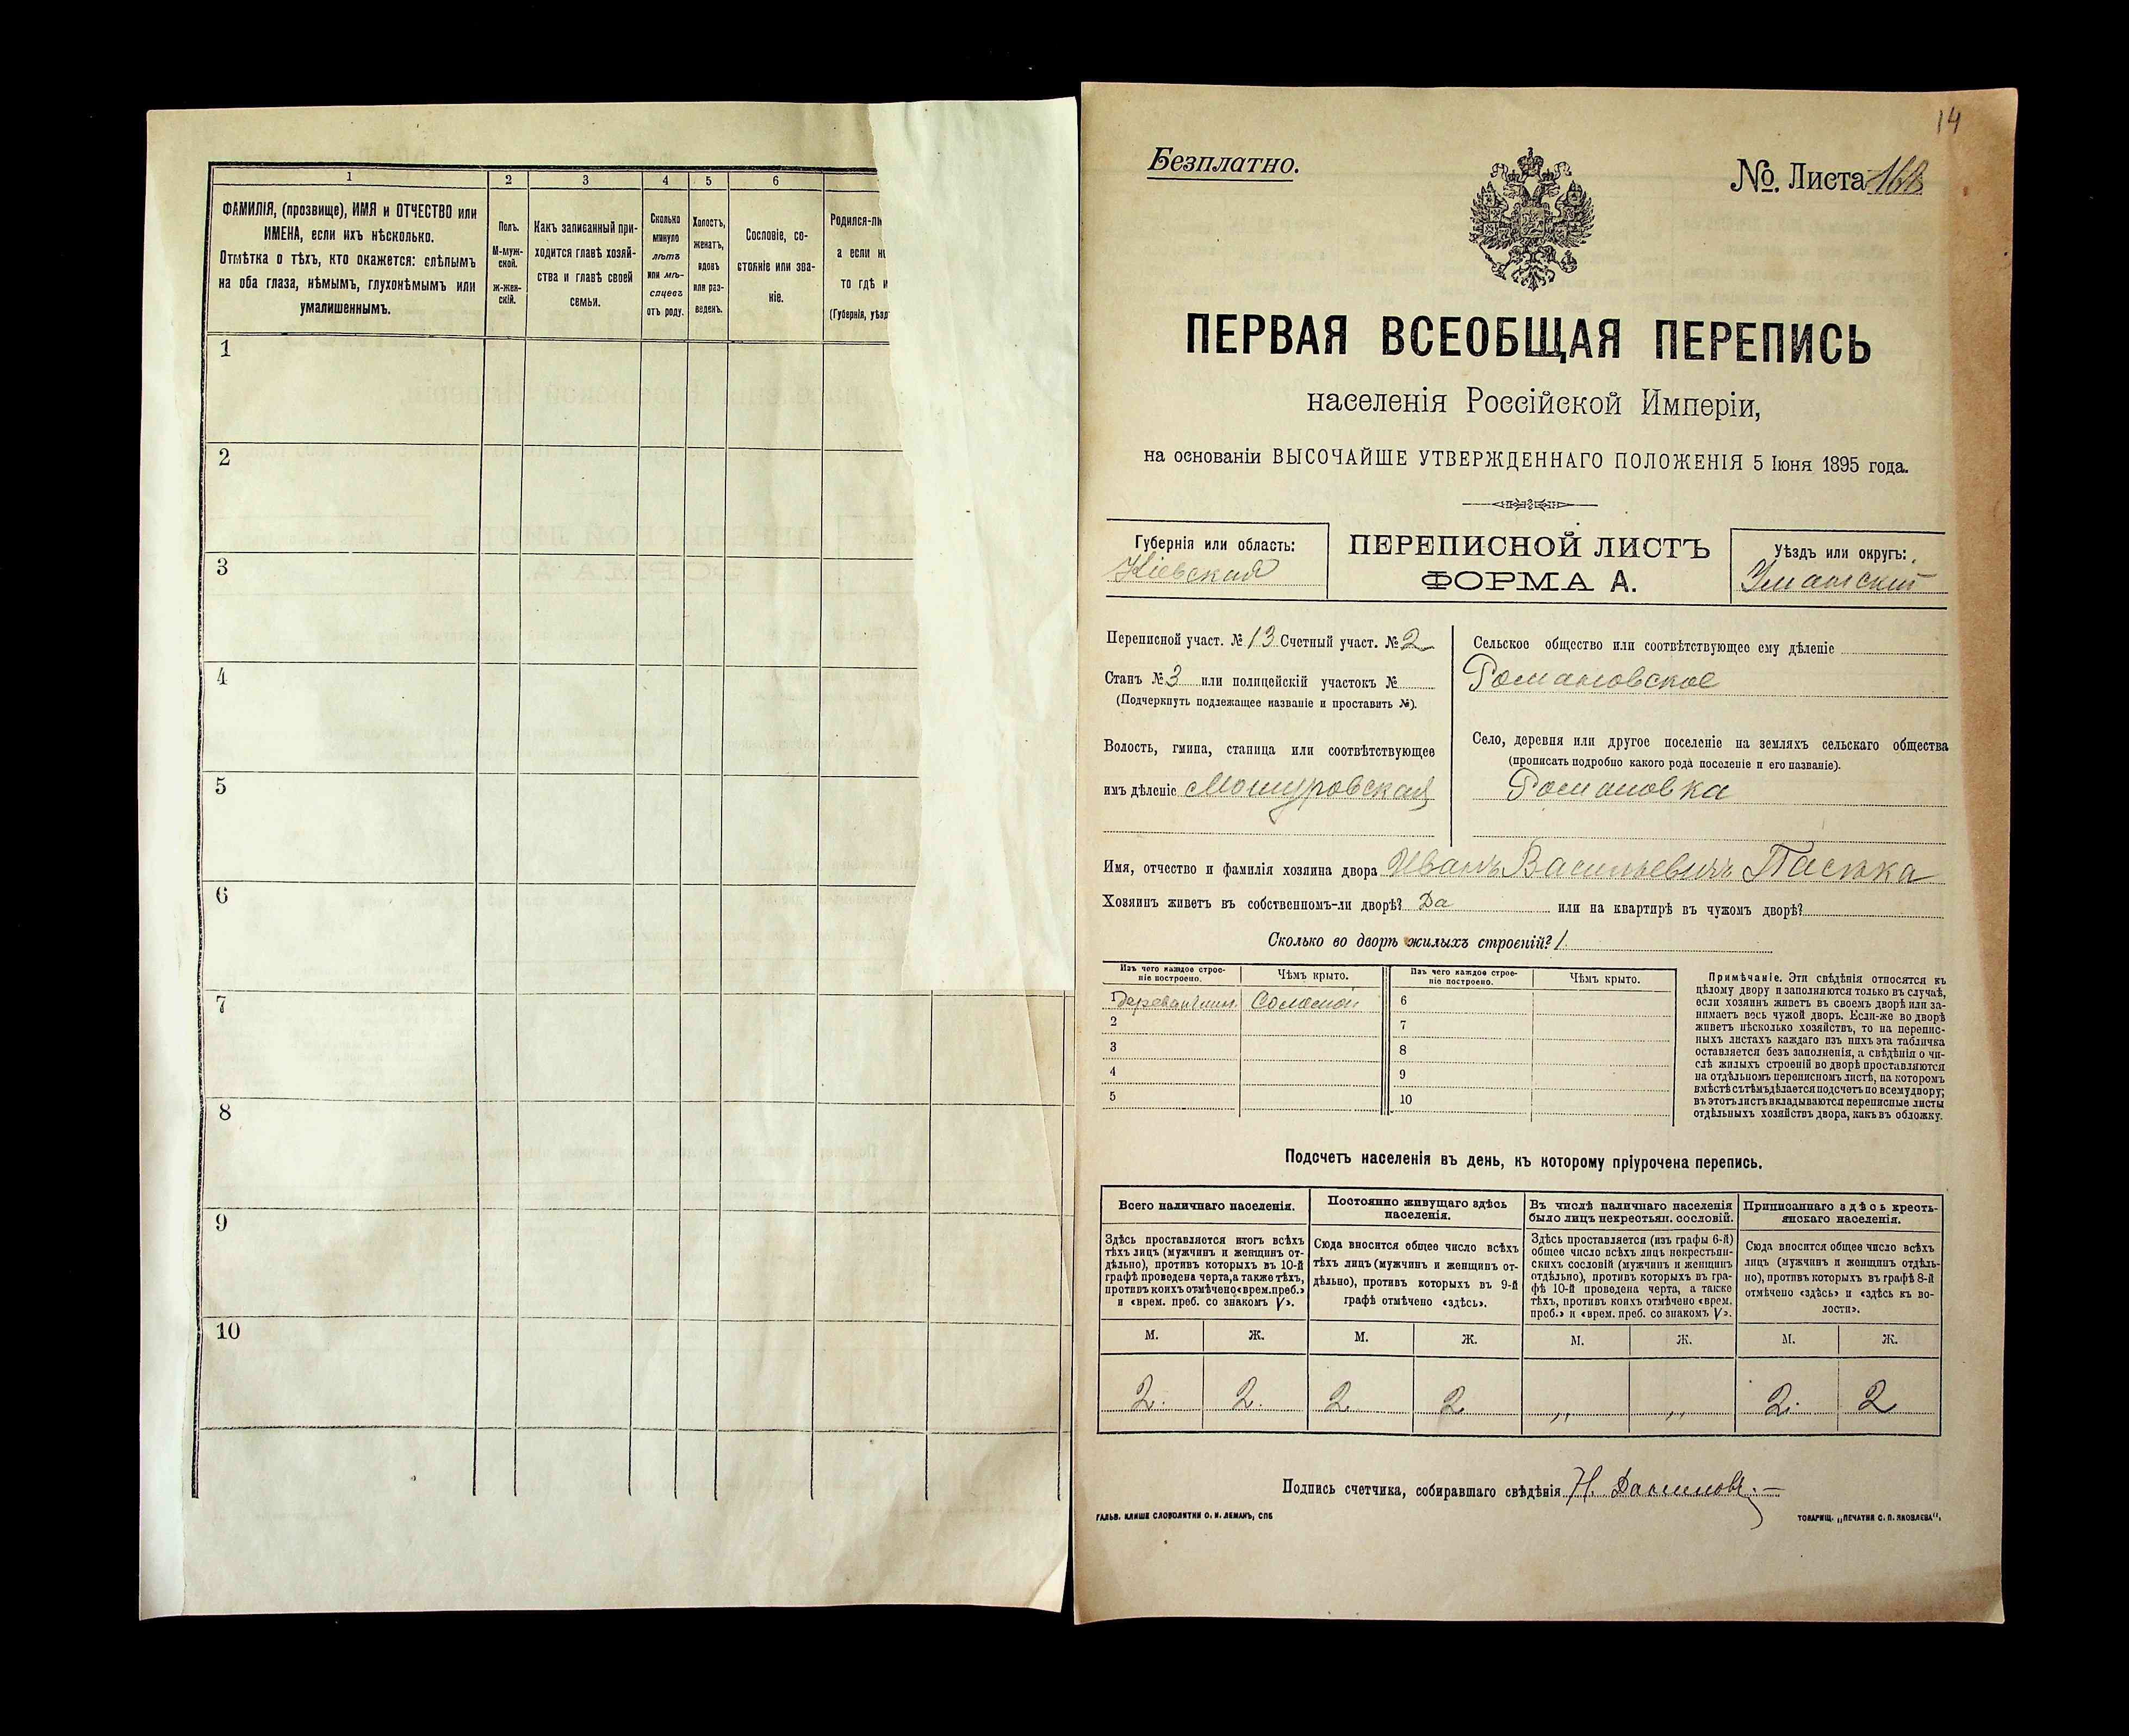 1 2 3 4 5 6
ФАМИЛІЯ, (прозвище), ИМЯ и ОТЧЕСТВО или
ИМЕНА, если ихъ нѣсколько.
Отмѣтка о тѣхъ, кто окажется: слѣпымъ
на оба глаза, нѣмымъ, глухонѣмымъ или
умалишеннымъ.
Полъ.
М-муж-
ской.
Ж-жен-
скій.
Какъ записанный при-
ходится главѣ хозяй-
ства и главѣ своей
семьи.
Сколько
минуло
лѣтъ
или мѣ-
сяцевъ
отъ роду.
Холостъ,
женатъ,
вдовъ
или раз-
веденъ.
Сословіе, со-
стояніе или зва-
ніе.
Родился-ли
а если
то гдѣ
(Губернія, уѣзд
1
2
3
4
5
6
7
8
9
10
14
Безплатно.
№. Листа
ПЕРВАЯ ВСЕОБЩАЯ ПЕРЕПИСЬ
населенія Россійской Имперіи,
на основаніи ВЫСОЧАЙШЕ УТВЕРЖДЕННАГО ПОЛОЖЕНІЯ 5 Іюня 1895 года.
Губернія или область:
Кіевская
ПЕРЕПИСНОЙ ЛИСТЪ
ФОРМА А.
Уѣздъ или округъ:
Уманскій
Переписной участ. № 13 Счетный участ. № 2
Станъ № 3 или полицейскій участокъ №
(Подчеркнуть подлежащее названіе и проставить №).
Волость, гмина, станица или соотвѣтствующее
имъ дѣленіе Мошуровская
Сельское общество или соотвѣтствующее ему дѣленіе
Романовское
Село, деревня или другое поселеніе на земляхъ сельскаго общества
(прописать подробно какого рода поселеніе и его названіе).
Романовка
Имя, отчество и фамилія хозяина двора Иванъ Васильевичъ Пасѣка
Хозяинъ живетъ въ собственномъ-ли дворѣ? Да или на квартирѣ въ чужомъ дворѣ?
Сколько во дворѣ жилыхъ строеній? 1
Изъ чего каждое строе-
ніе построено.
Чѣмъ крыто.
Изъ чего каждое строе-
ніе построено.
Чѣмъ крыто.
1 Соломой 6
2 7
3 8
4 9
5 10
Примѣчаніе. Эти свѣдѣнія относятся къ
цѣлому двору и заполняются только въ случаѣ,
если хозяинъ живетъ въ своемъ дворѣ или за-
нимаетъ весь чужой дворъ. Если-же во дворѣ
живетъ нѣсколько хозяйствъ, то на перепис-
ныхъ листахъ каждаго изъ нихъ эта табличка
оставляется безъ заполненія, а свѣдѣнія о чи-
слѣ жилыхъ строеній во дворѣ проставляются
на отдѣльномъ переписномъ листѣ, на которомъ
вмѣстѣ съ тѣмъ дѣлается подсчетъ по всему двору;
въ этотъ листъ вкладываются переписные листы
отдѣльныхъ хозяйствъ двора, какъ въ обложку.
Подсчетъ населенія въ день, къ которому пріурочена перепись.
Всего наличнаго населенія.
Здѣсь проставляется итогъ всѣхъ
тѣхъ лицъ (мужчинъ и женщинъ от-
дѣльно), противъ которыхъ въ 10-й
графѣ проведена черта, а также тѣхъ,
противъ коихъ отмѣчено «врем. преб.»
и «врем. преб. со знакомъ V».
Постоянно живущаго здѣсь
населенія.
Сюда вносится общее число всѣхъ
тѣхъ лицъ (мужчинъ и женщинъ от-
дѣльно), противъ которыхъ въ 9-й
графѣ отмѣчено «здѣсь».
Въ числѣ наличнаго населенія
было лицъ некрестьян. сословій.
Здѣсь проставляется (изъ графы 6-й)
общее число всѣхъ лицъ некрестьян-
скихъ сословій (мужчинъ и женщинъ
отдѣльно), противъ которыхъ въ гра-
фѣ 10-й проведена черта, а также
тѣхъ, противъ коихъ отмѣчено «врем.
преб.» и «врем. преб. со знакомъ V».
Приписаннаго здѣсь кресть-
янскаго населенія.
Сюда вносится общее число всѣхъ
лицъ (мужчинъ и женщинъ отдѣль-
но), противъ которыхъ въ графѣ 8-й
отмѣчено «здѣсь» и «здѣсь къ во-
лости».
М. Ж. М. Ж. М. Ж. М. Ж.
2. 2. 2. 2 „ „ 2. 2
Подпись счетчика, собиравшаго свѣдѣнія Н.
ГАЛЬВ. КЛИШЕ СЛОВОЛИТНИ О. И. ЛЕМАНЪ, СПБ
ТОВАРИЩ. „ПЕЧАТНЯ С. П. ЯКОВЛЕВА“.